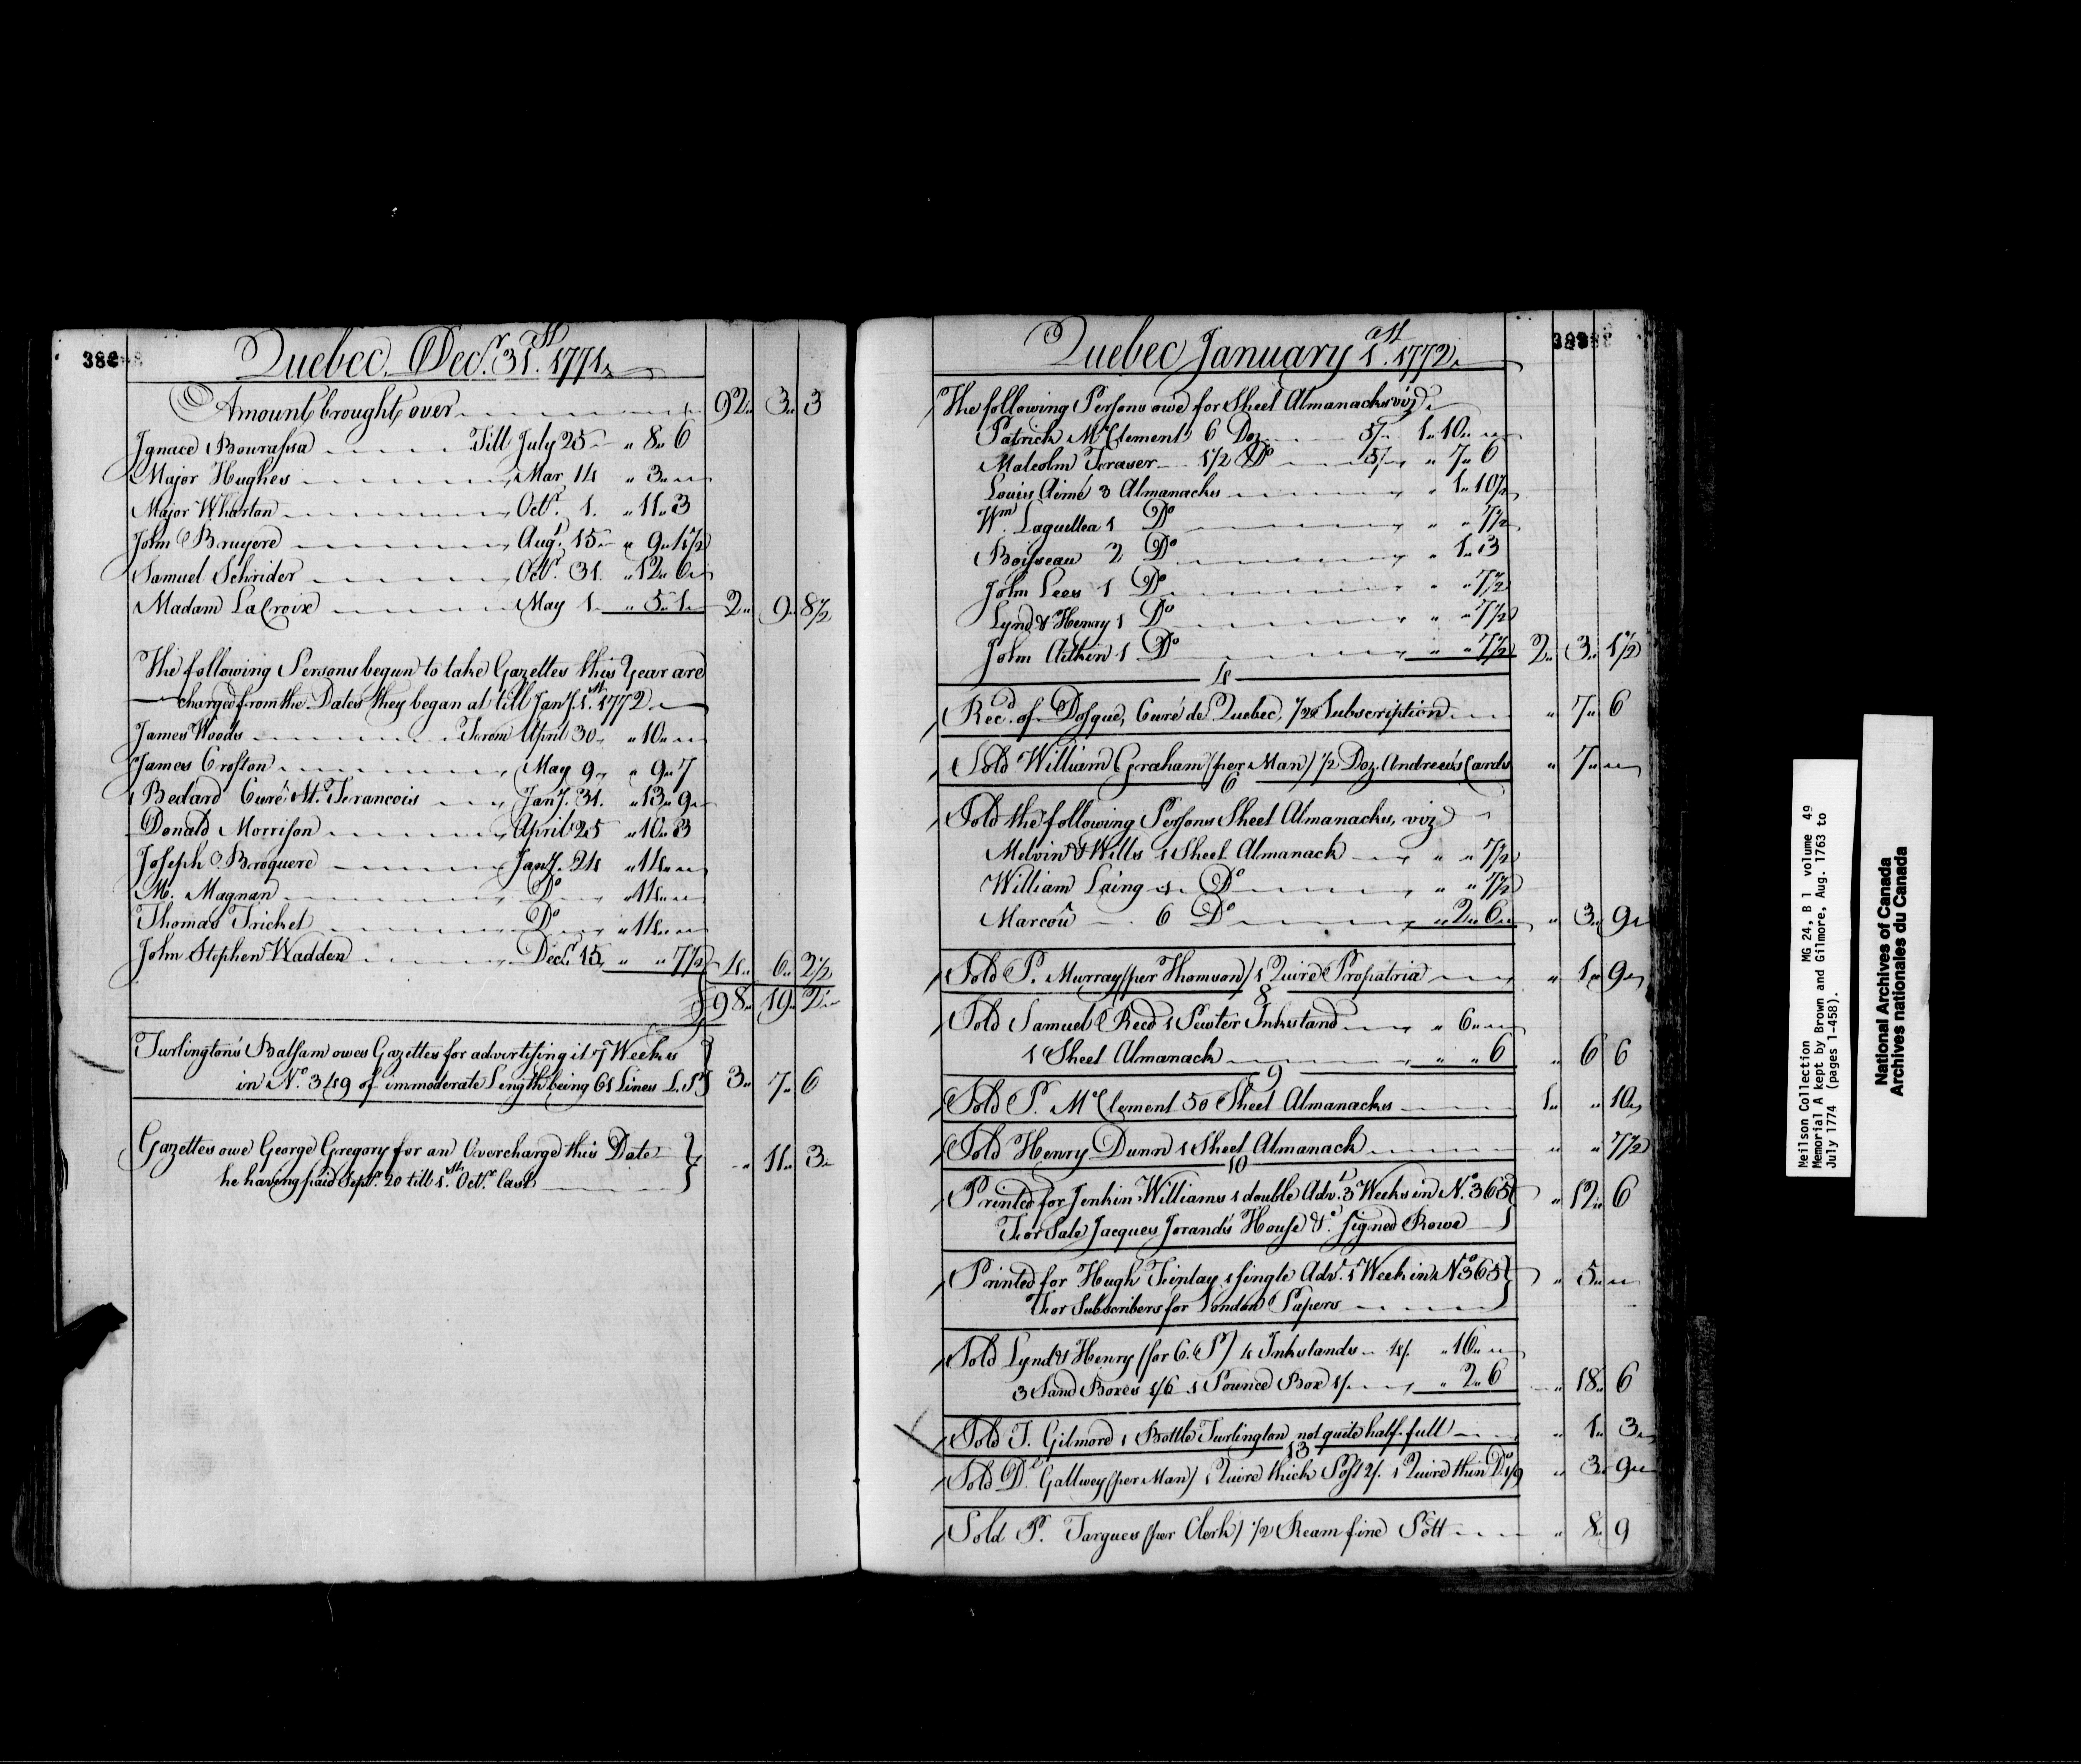 382
Quebec Decr. 31st. 1771.
Amount brought over 92 .. 3 .. 3
Ignace Bourassa Till July 25 " 8 " 6
Major Hughes Mar. 14 " 3 "
Major Wharton Octr. 1. " 11 " 3
John Bruyere Augt. 15 " 9 " 4½
Samuel Schrider Octr. 31. " 12 " 6
Madam La Croix May 1 " 5 " 1 2 .. 9 .. 8½
The following Persons begun to take Gazettes this Year are
charged from the Dates they began at till Jany. 1st. 1772
James Woods From April 30 " 10 "
James Crofton May 9 " 9 " 7
Bedard Curé St. Francois Jany. 31. " 13 " 9
Donald Morrison April 25 " 10 " 3
Joseph Broquere Jany. 24 " 14 "
M. Magnan Do " 14 "
Thomas Tricket Do " 14 "
John Stephen Wadden Decr. 15 " " 7½ 4 .. 6 .. 2½
98 .. 19 .. 2
Turlington's Balsam owes Gazettes for advertising it 7 Weeks
in No. 349 of immoderate Length being 61 Lines L. P. 3 .. 7 .. 6
Gazettes owe George Gregory for an Overcharge this Date
he having paid Septr. 20 till 1st. Octr. last " 11 .. 3
383
Quebec January 1st. 1772.
The following Persons owe for Sheet Almanacks viz
Patrick McClement 6 Doz 5/ 1 " 10 "
Malcolm Fraser 1½ Do 5/ " 7 " 6
Louis Aimé 3 Almanacks " 1 " 10½
Wm. Laguellea 1 Do " " 7½
Boisseau 2 Do " 1 " 3
John Lees 1 Do " " 7½
Lynd & Henry 1 Do " " 7½
John Aitkin 1 Do " " 7½ 2 .. 3 .. 1½
4
Recd. of Dosque, Curé de Quebec, ½ Subscription " 7 " 6
Sold William Graham (per Man) ½ Doz. Andrew's Cards " 7 "
6
Sold the following Persons Sheet Almanacks, viz
Melvin & Wills 1 Sheet Almanack " " 7½
William Laing 1 Do " " 7½
Marcou 6 Do " 2 " 6 " 3 .. 9
Sold P. Murray (per Thomson) 1 Quire Propatria " 1 " 9
8
Sold Samuel Reed 1 Pewter Inkstand " 6 "
1 Sheet Almanack " " 6 " 6 6
9
Sold P. McClement 50 Sheet Almanacks 1 " " 10
Sold Henry Dunn 1 Sheet Almanack " " 7½
10
Printed for Jenkin Williams 1 double Advt. 3 Weeks in No. 365
For Sale Jacques Jorand's House &c. signed Rowe " 12 .. 6
Printed for Hugh Finlay 1 single Advt. 1 Week in No 365
For Subscribers for London Papers " 5 "
Sold Lynd & Henry (for C. P.) 4 Inkstands 4/. " 16 "
3 Sand Boxes 1/6 1 Pounce Box 1/. " 2 " 6 " 18 .. 6
Sold T. Gilmore 1 Bottle Turlington not quite half full " 1 .. 3
13
Sold Dr. Gallwey (per Man) 1 Quire thick Post 2/. 1 Quire thin Do. 1/9 " 3 .. 9
Sold P. Fargues (per Clerk) ½ Ream fine Pott " 8 .. 9
Neilson Collection MG 24, B 1 volume 49
Memorial A kept by Brown and Gilmore, Aug. 1763 to
July 1774 (pages 1-458).
National Archives of Canada
Archives nationales du Canada